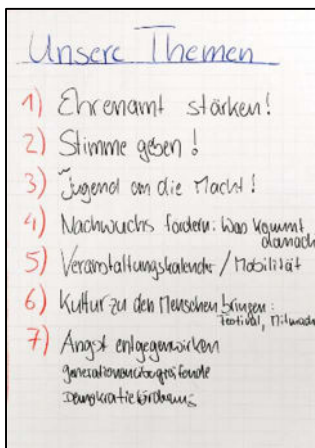 Unsere Themen
1) Ehrenamt stärken!
2) Stimme geben!
3) Jugend an die Macht!
4) Nachwuchs fördern: Was kommt
danach
5) Veranstaltungskalender / Mobilität
6) Kultur zu den Menschen bringen:
Festival, Mitmach
7) Angst entgegenwirken
generationenübergreifende
Demokratieförderung